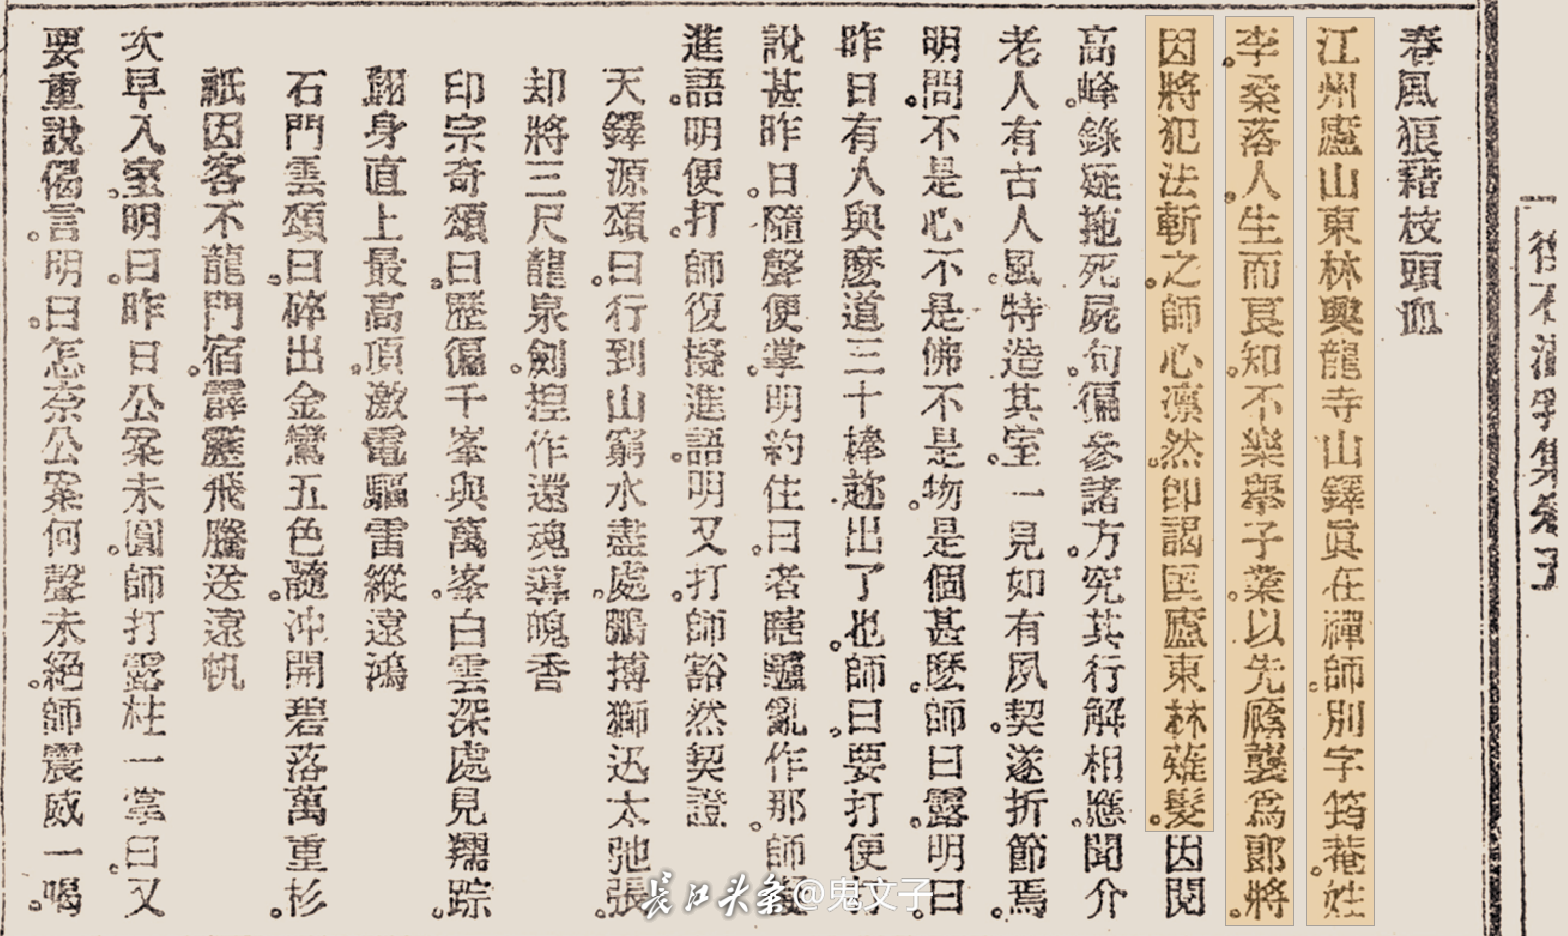 春風狼藉枝頭血
江州廬山東林興龍寺山鐸眞在禪師別字筠菴姓
李桑落人生而艮知不樂舉子業以先廕襲爲郎將
因將犯法斬之師心凛然卽謁匡廬東林薙髮因閱
高峰錄疑拖死屍句徧參諸方究其行解相應聞介
老人有古人風特造其室一見如有夙契遂折節焉
明問不是心不是佛不是物是個甚麽師曰露明曰
昨日有人與麽道三十棒趂出了也師曰要打便
說甚昨日隨聲便掌明約住曰者瞎驢亂作那師
進語明便打師復擬進語明又打師豁然契證
天鐸源頌曰行到山窮水盡處鵬搏獅迅太弛張
却將三尺龍泉劍揑作還魂薄魄香
印宗奇頌曰歷徧千峯與萬峯白雲深處見羺踪
翻身直上最高頂激電驅雷縱遠鴻
石門雲頌曰碎出金鸞五色髓沖開碧落萬重杉
祇因客不龍門宿霹靂飛騰送遠帆
次早入室明曰昨日公案未圓師打露柱一掌曰又
要重說偈言明曰怎奈公案何聲未絕師震威一喝
長江头条@鬼文子